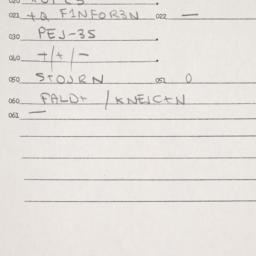 021 +Q F1NFOR3N 022 —
030 PEJ-35
040 +/+/-
050 STOJRN 051 0
060 FALD+ / KNEIC+N
061 —